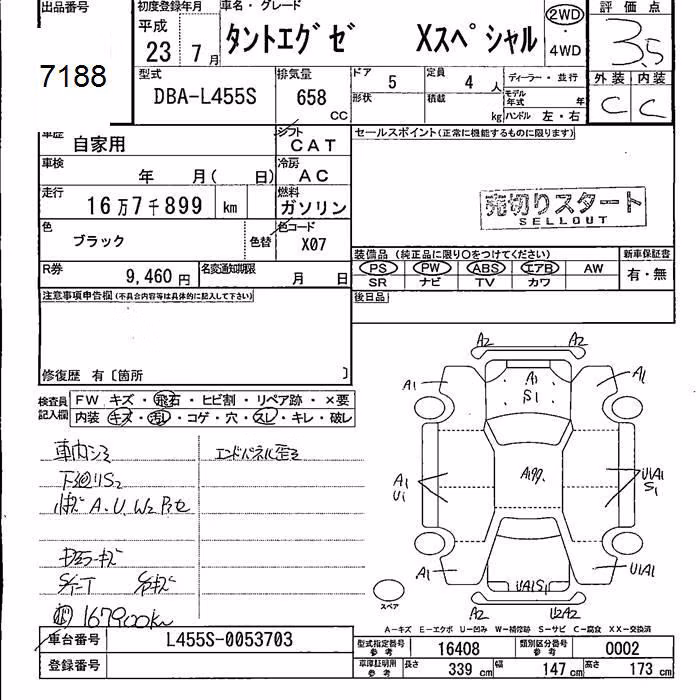 出品番号
7188
初度登録年月
平成
23年 7月
車名・グレード
タントエグゼ Xスペシャル
2WD
4WD
評価点
3.5
外装 内装
C C
型式
DBA-L455S
排気量
658 CC
ドア 5
形状
定員 4 人
積載 kg
ディーラー・並行
モデル年式 年
ハンドル 左・右
車歴
自家用
シフト
CAT
車検
年 月( 日)
冷房
AC
走行
16万7千899 km
燃料
ガソリン
色
ブラック
色替
色コード
X07
R券
9,460 円
名変通知期限
月 日
セールスポイント(正常に機能するものに限ります)
売切りスタート
SELLOUT
装備品 (純正品に限り○をつけてください)
新車保証書
PS PW ABS エアB AW
SR ナビ TV カワ
有・無
後日品
注意事項申告欄 (不具合内容等は具体的に記入して下さい)
修復歴 有〔箇所 〕
検査員記入欄
FW キズ・飛石・ヒビ割・リペア跡・×要
内装 キズ・汚レ・コゲ・穴・スレ・キレ・破レ
車内シミ
エンドパネル歪ミ
下廻りS2
A.U.W2
167900km
A2 A2
A1 A1 A1
S1
A1 U1
U1A1 S1
A1 U1A1
U1A1S1
A2 U2A2
スペア
A-キズ E-エクボ U-凹み W-補修跡 S-サビ C-腐食 XX-交換済
車台番号
L455S-0053703
登録番号
型式指定番号 参考
16408
類別区分番号 参考
0002
車庫証明用 参考
長さ 339 cm 幅 147 cm 高さ 173 cm